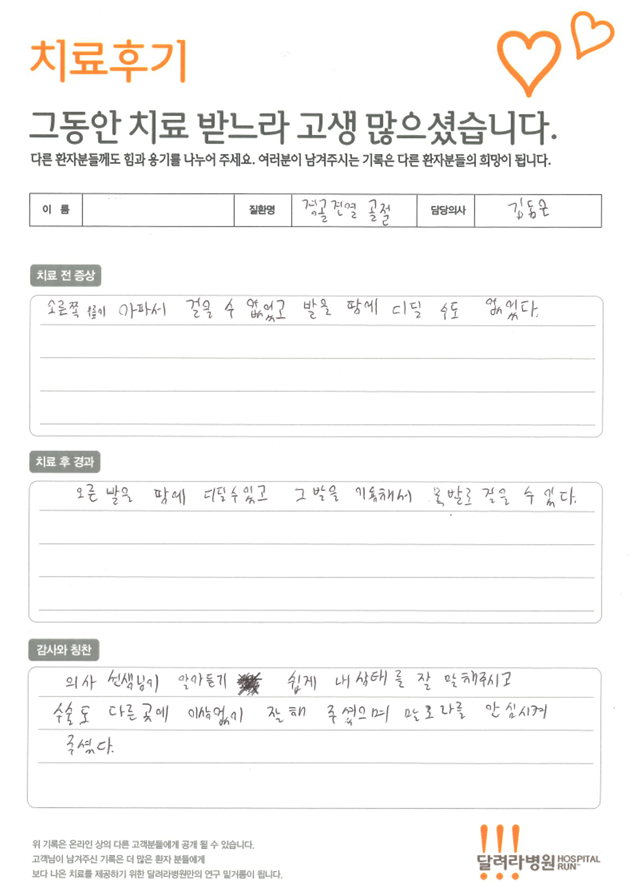 치료후기
그동안 치료 받느라 고생 많으셨습니다.
다른 환자분들께도 힘과 용기를 나누어 주세요. 여러분이 남겨주시는 기록은 다른 환자분들의 희망이 됩니다.
이 름 질환명 경골견열 골절 담당의사 김동은
치료 전 증상
오른쪽 무릎이 아파서 걸을 수 없었고 발을 땅에 디딜 수도 없었다.
치료 후 경과
오른 발을 땅에 디딜수있고 그 발을 사용해서 목발로 걸을 수 있다.
감사와 칭찬
의사 선생님이 알아듣기 쉽게 내 상태를 잘 말해주시고
수술도 다른곳에 이상없이 잘해 주셨으며 나를 안심시켜
주셨다.
위 기록은 온라인 상의 다른 고객분들에게 공개 될 수 있습니다.
고객님이 남겨주신 기록은 더 많은 환자 분들에게
보다 나은 치료를 제공하기 위한 달려라병원만의 연구 밑거름이 됩니다.
달려라병원 HOSPITAL RUN